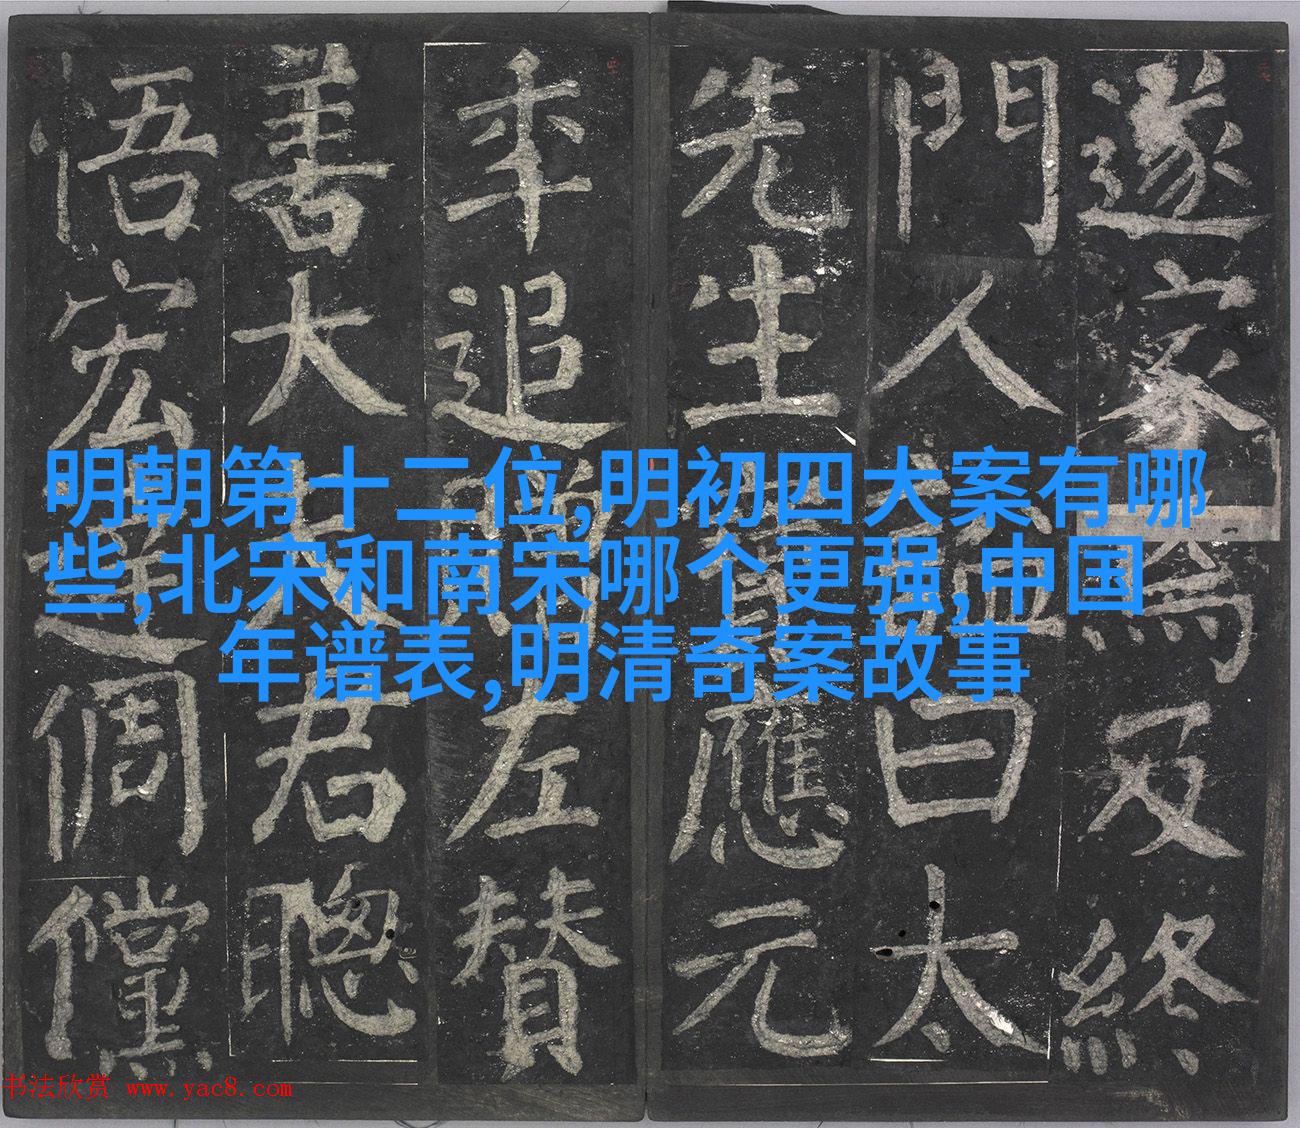 遂家焉及終
門人謚曰太
先生寶應元
年追贈左贊
善大夫君聰
悟宏達倜儻
明朝第十二位,明初四大案有哪
些,北宋和南宋哪个更强,中国
年谱表,明清奇案故事
书法欣赏 www.yac8.com